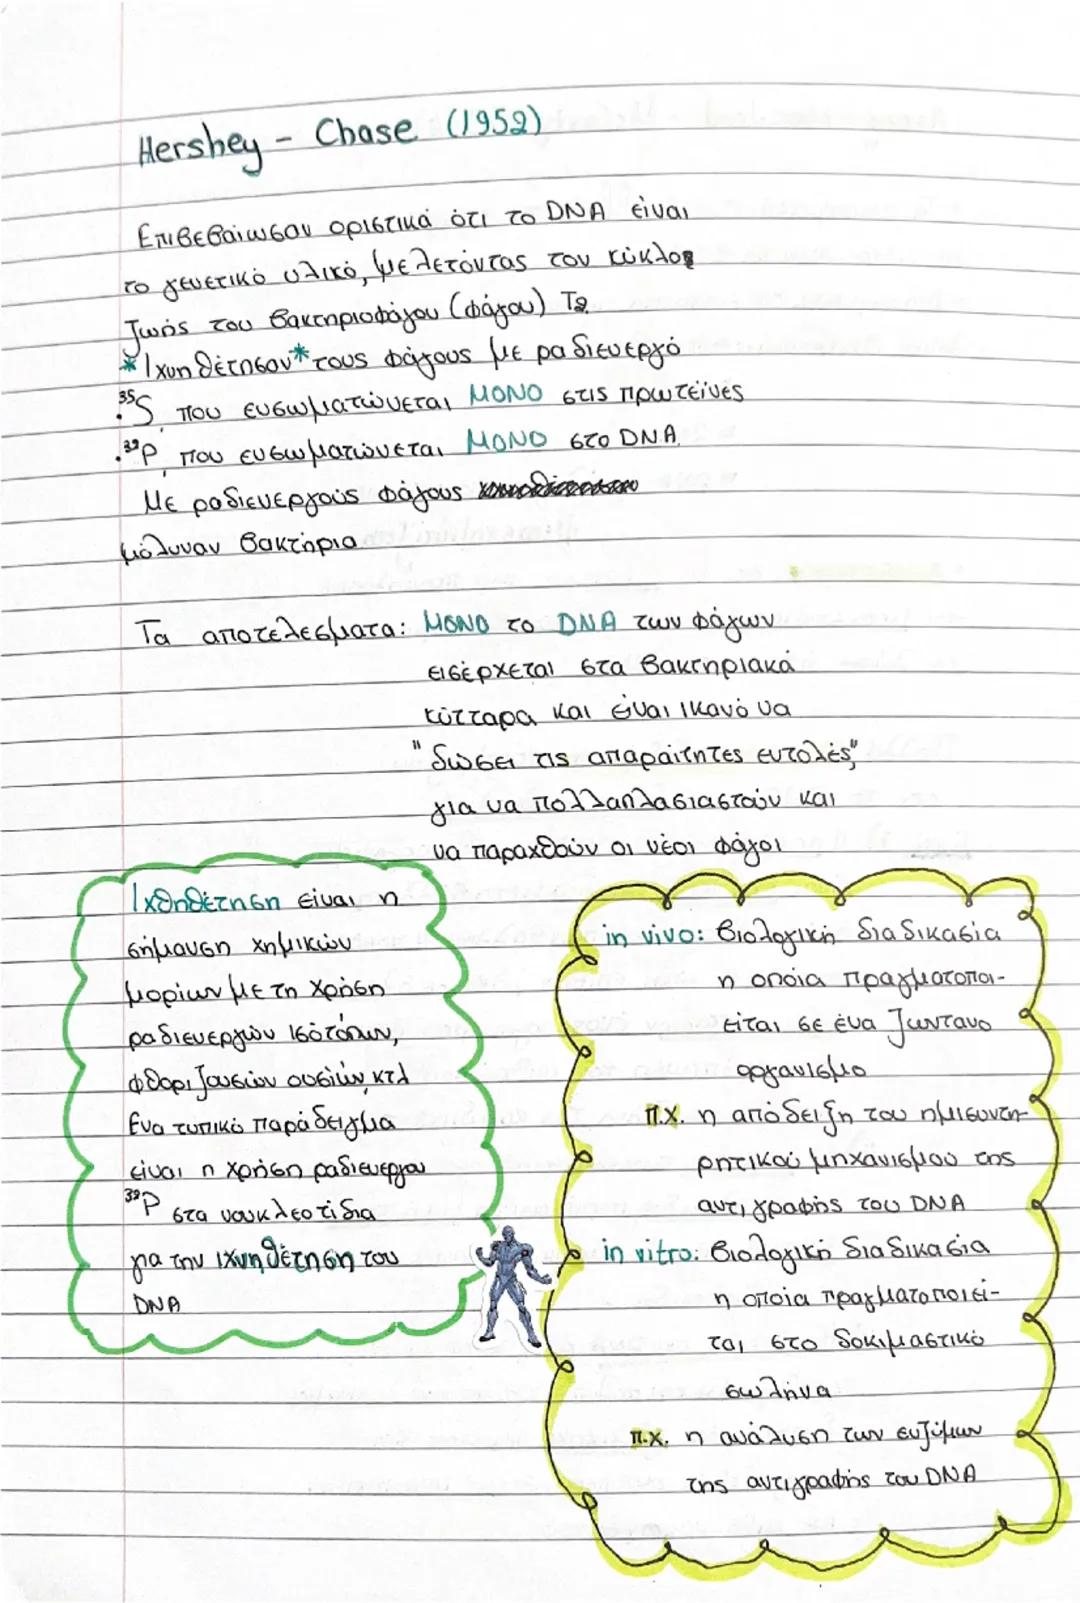 Hershey - Chase (1952)
Επιβεβαίωσαν οριστικά ότι το DNA είναι
το γενετικό υλικό, μελετόντας τον κύκλο
ζωής του βακτηριοφάγου (φάγου) T2
*Ιχνηθέτησαν* τους φάγους με ραδιενεργό
• ³⁵S που ενσωματώνεται ΜΟΝΟ στις πρωτεϊνες
• ³²P που ενσωματώνεται ΜΟΝΟ στο DNA
Με ραδιενεργούς φάγους
μόλυναν βακτήρια
Τα αποτελέσματα: ΜΟΝΟ το DNA των φάγων
εισέρχεται στα βακτηριακά
κύτταρα και είναι ικανό να
"δώσει τις απαραίτητες εντολές"
για να πολλαπλασιαστούν και
να παραχθούν οι νέοι φάγοι
Ιχθηθέτηση είναι η
σήμανση χημικών
μορίων με τη χρήση
ραδιενεργών ισότόπων,
φθοριζουσών ουσιών κτλ
Ενα τυπικό παράδειγμα
είναι η χρήση ραδιενεργου
³²P στα νουκλεοτίδια
για την ιχνηθέτηση του
DNA
in vivo: βιολογική διαδικασία
η οποία πραγματοποι-
είται σε ένα ζωντανο
οργανισμο
π.χ. η απόδειξη του ημισυντη-
ρητικού μηχανισμού της
αντιγραφής του DNA
in vitro: βιολογική διαδικασία
η οποία πραγματοποιεί-
ται στο δοκιμαστικό
σωλήνα
π.χ. η ανάλυση των ενζύμων
της αντιγραφής του DNA